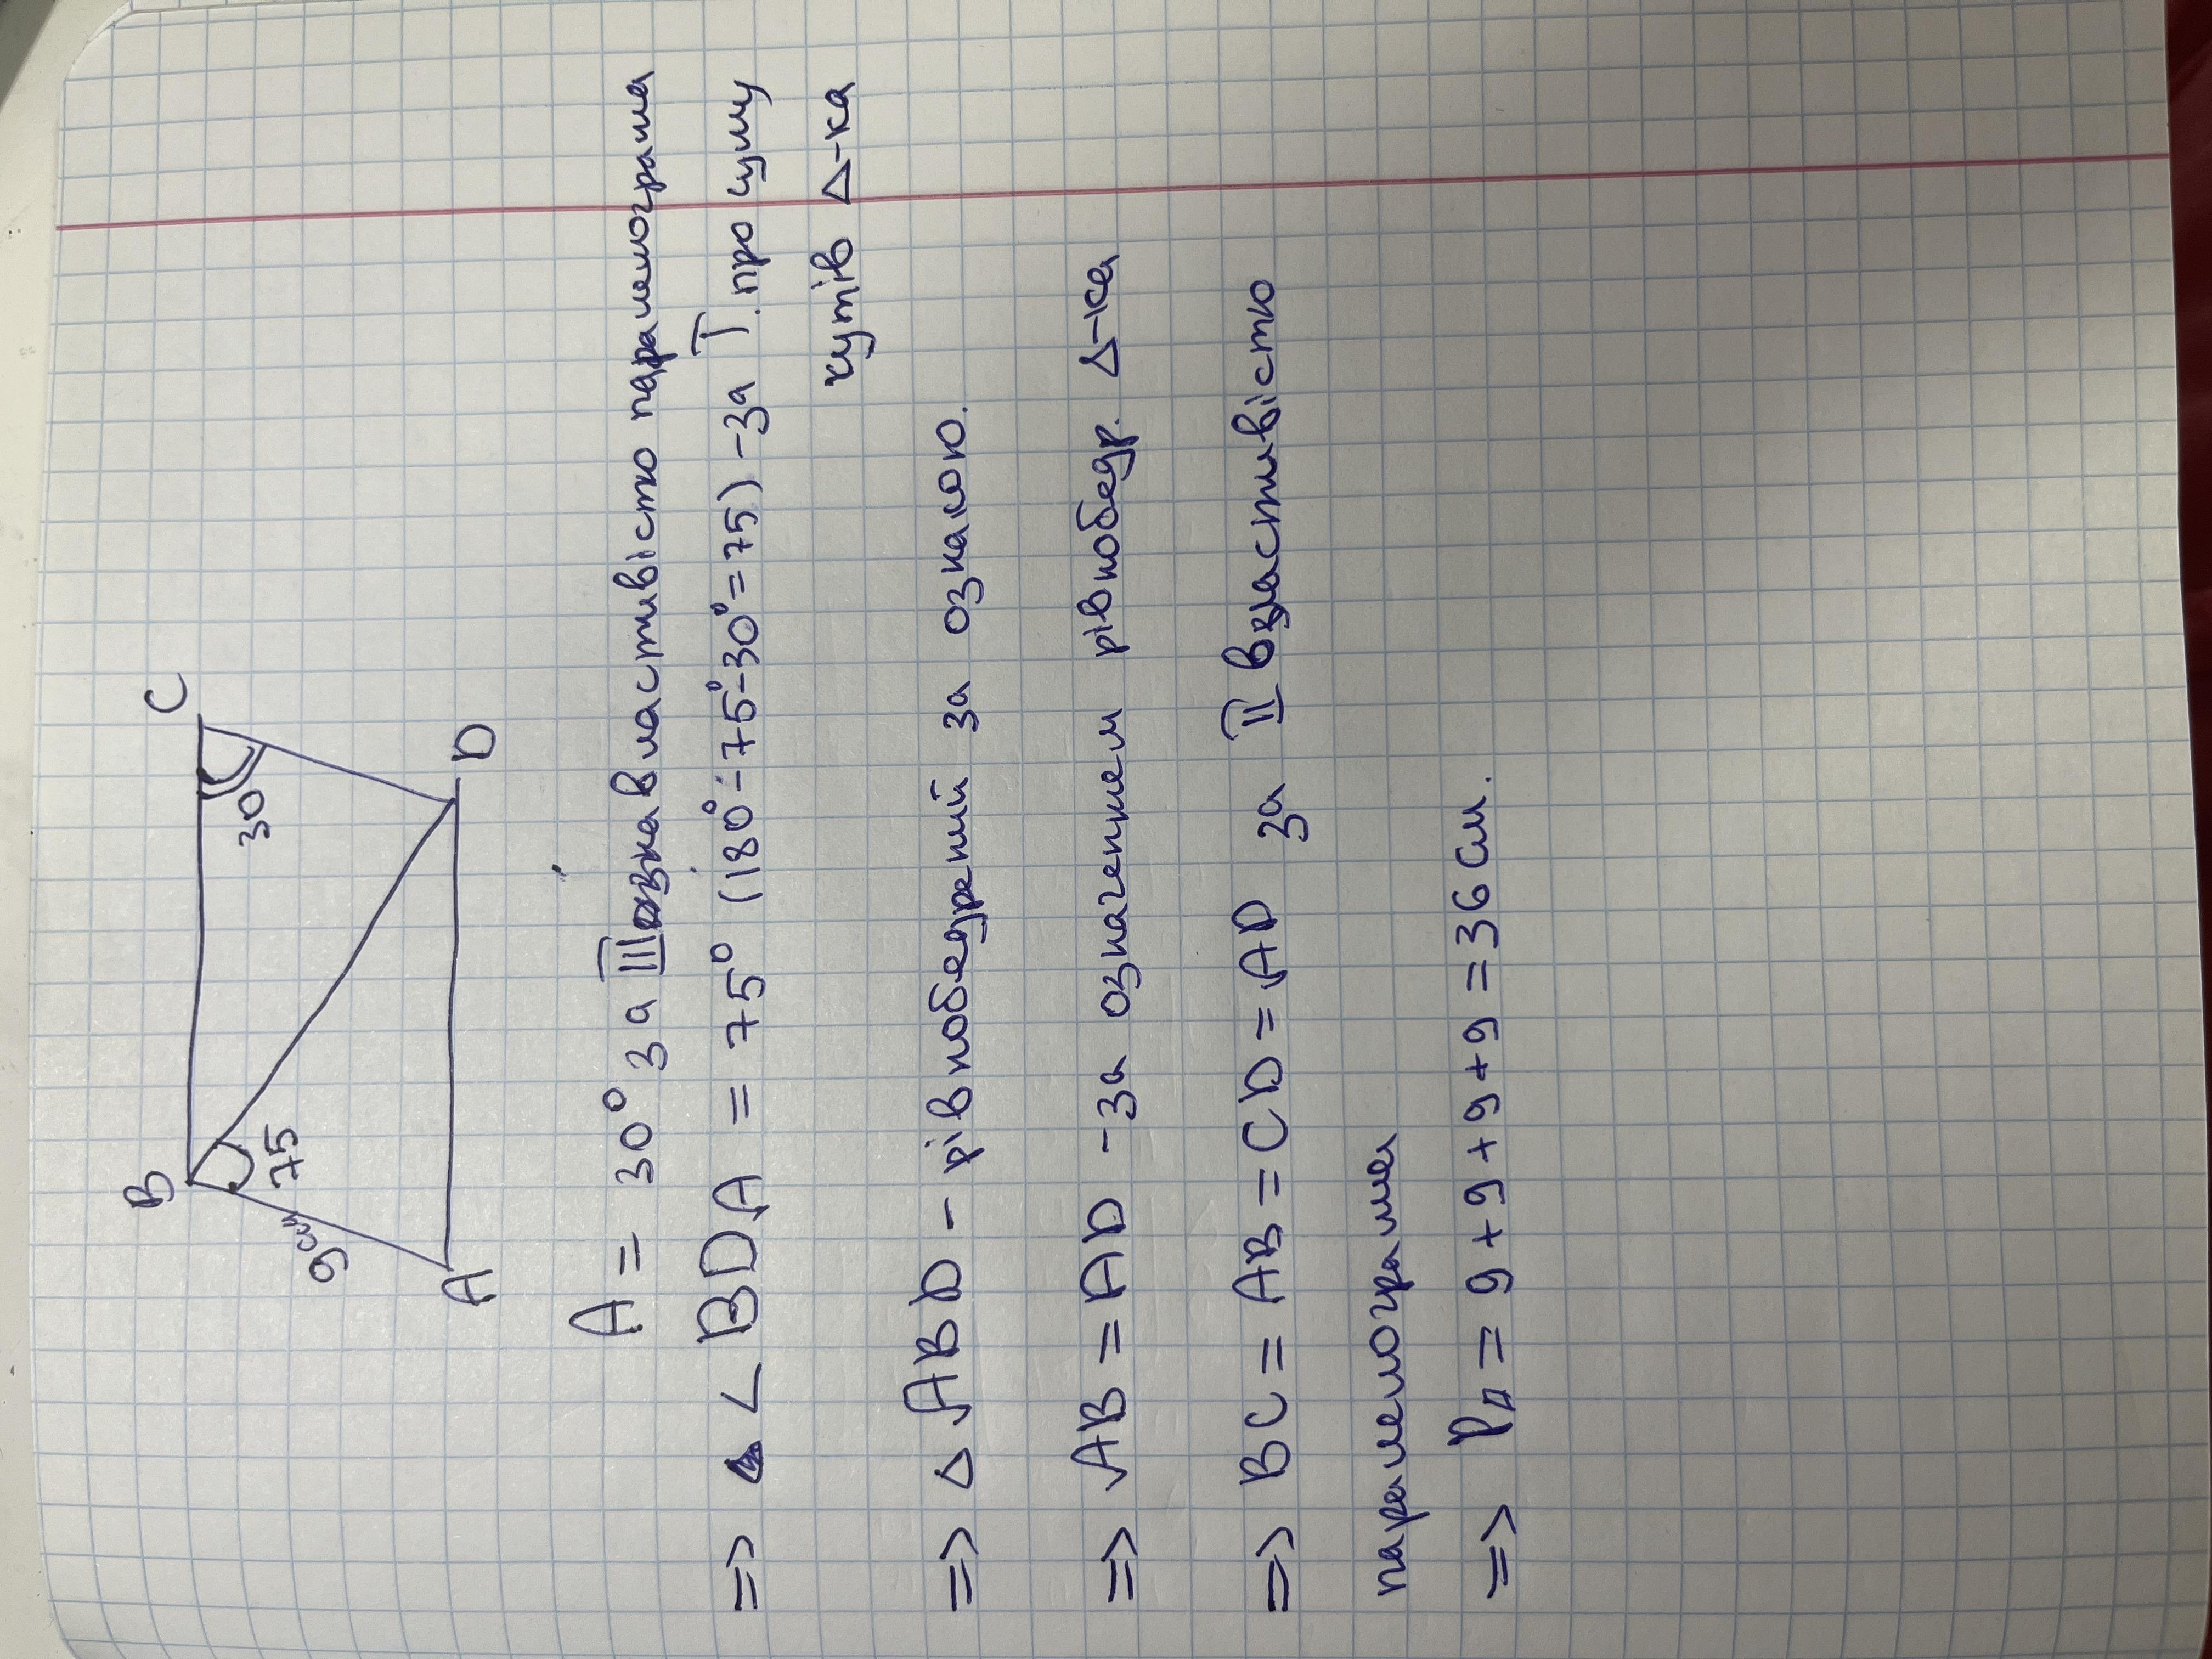 B C
30
75
9см
A D
A = 30° за III властивістю паралелограма
=> < BDA = 75° (180°-75°-30°=75) -за Т. про суму
кутів Δ-ка
=> Δ ABD - рівнобедрений за ознакою.
=> AB = AD -за означенням рівнобедр. Δ-ка
=> BC = AB = CD = AD за II властивістю
паралелограма
=> P = 9+9+9+9 = 36 см.